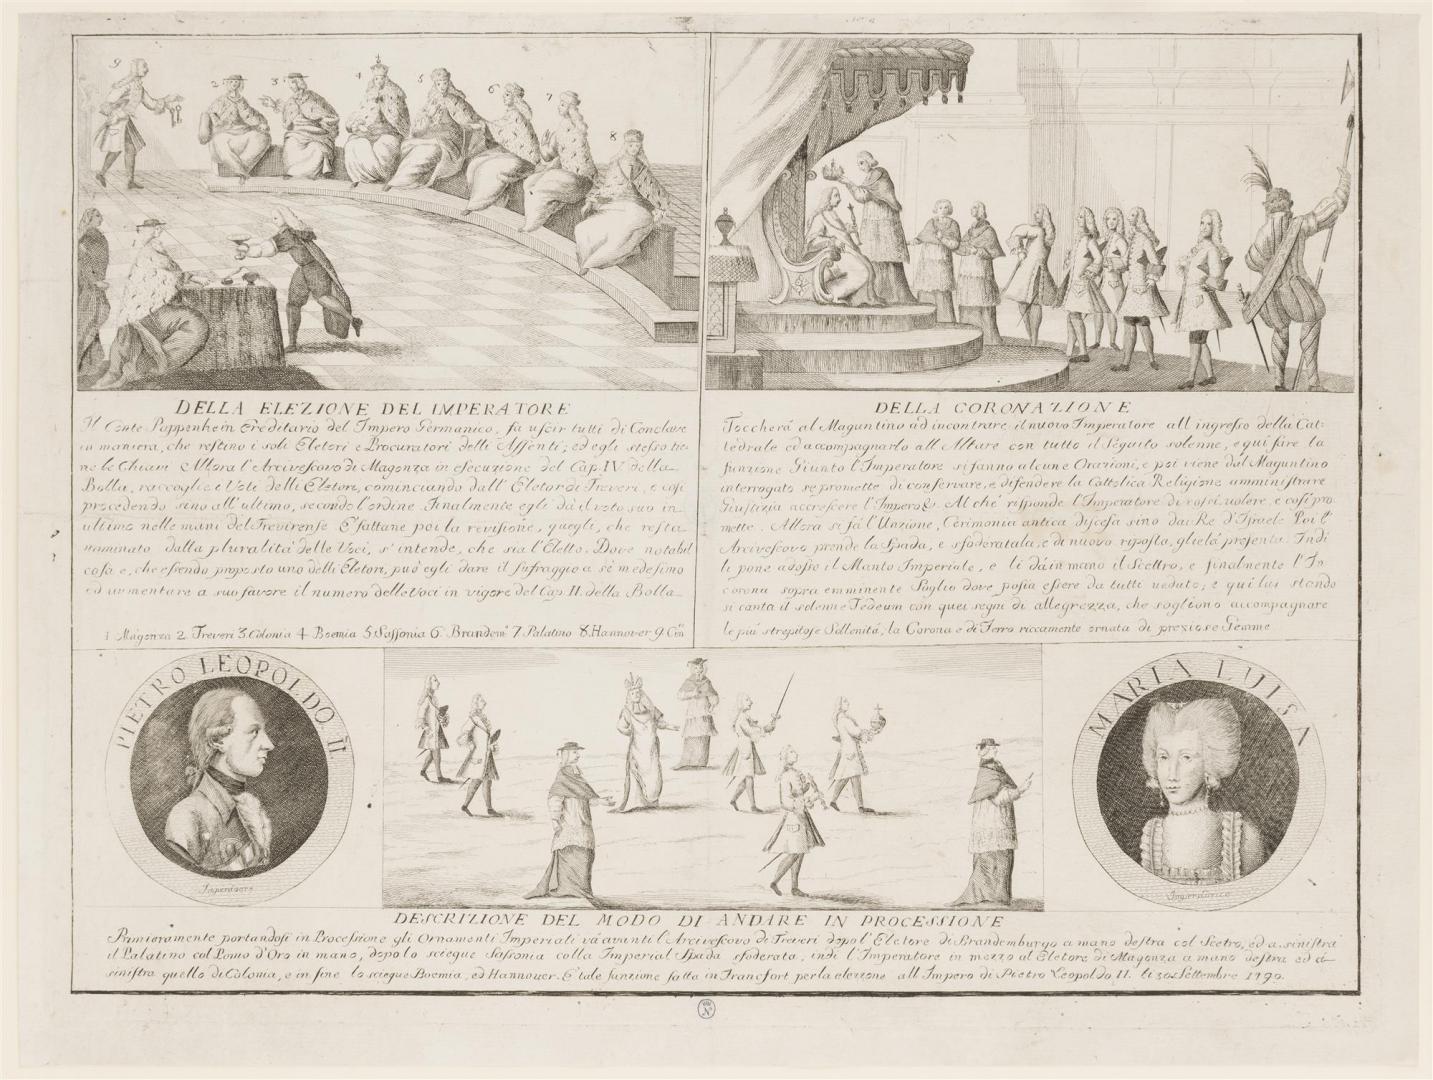 9 2 3 4 5 6 7 8
DELLA ELEZIONE DEL IMPERATORE
Il Conte Pappenhein Ereditario del Impero Germanico, fa uscir tutti di Conclave
in maniera, che restino i soli Eletori e Procuratori delli Assenti; ed egli stesso tie-
ne le Chiavi Allora l'Arcivescovo di Magonza in esecuzione del Cap. IV della
Bolla, raccoglie i Voti delli Eletori, cominciando dall'Eletor di Treveri, e così
procedendo sino all'ultimo, secondo l'ordine Finalmente egli dà il voto suo in
ultimo nelle mani del Trevirense E fattane poi la revisione, quegli, che resta
nominato dalla pluralità delle Voci, s'intende, che sia l'Eletto. Dove notabil
cosa e, che essendo proposto uno delli Eletori, può egli dare il suffraggio a se medesimo
ed aumentare a suo favore il numero delle Voci in vigore del Cap. II. della Bolla
1 Magonza 2 Treveri 3 Colonia 4 Boemia 5 Sassonia 6 Brandem 7 Palatino 8 Hannover 9
DELLA CORONAZIONE
Toccherá al Maguntino ad incontrare il nuovo Imperatore all ingresso della Cat-
tedrale ed accompagnarlo all Altare con tutto il Seguito solenne, e qui fare la
funzione Giunto l'Imperatore si fanno alcune Orazioni, e poi viene dal Maguntino
interrogato se promette di conservare, e difendere la Cattolica Religione amministrare
Giustizia accrescere l'Impero & Al che risponde l'Imperatore di volere, e così pro
mette Allora si fá l'Unzione, Cerimonia antica discesa sino dai Re d'Israele Poi l'
Arcivescovo prende la Spada, e sfoderatala, e di nuovo riposta, gliela presenta Indi
li pone adosso il Manto Imperiale, e li dá in mano il Scettro, e finalmente l'In
corona sopra eminente Soglio dove possa essere da tutti veduto; e qui lui stando
si canta il solenne Tedeum con quei segni di allegrezza, che sogliono accompagnare
le più strepitose Sollenitá, la Corona e di Ferro riccamente ornata di preziose Gemme
PIETRO LEOPOLDO II
Imperatore
MARIA LUISA
Imperatrice
DESCRIZIONE DEL MODO DI ANDARE IN PROCESSIONE
Primieramente portandosi in Processione gli Ornamenti Imperiali vá avanti l'Arcivescovo di Treveri dopo l'Eletore di Brandemburgo a mano destra col Scetro, ed a sinistra
il Palatino col Pomo d'Oro in mano, dopo lo sciegue Sassonia colla Imperial Spada sfoderata, indi l'Imperatore in mezzo al Eletore di Magonza a mano destra ed a
sinistra quello di Colonia, e in fine lo sciegue Boemia, ed Hannover. E tale funzione fatta in Francfort per la elezione all Impero di Pietro Leopoldo II. li 30 Settembre 1790.